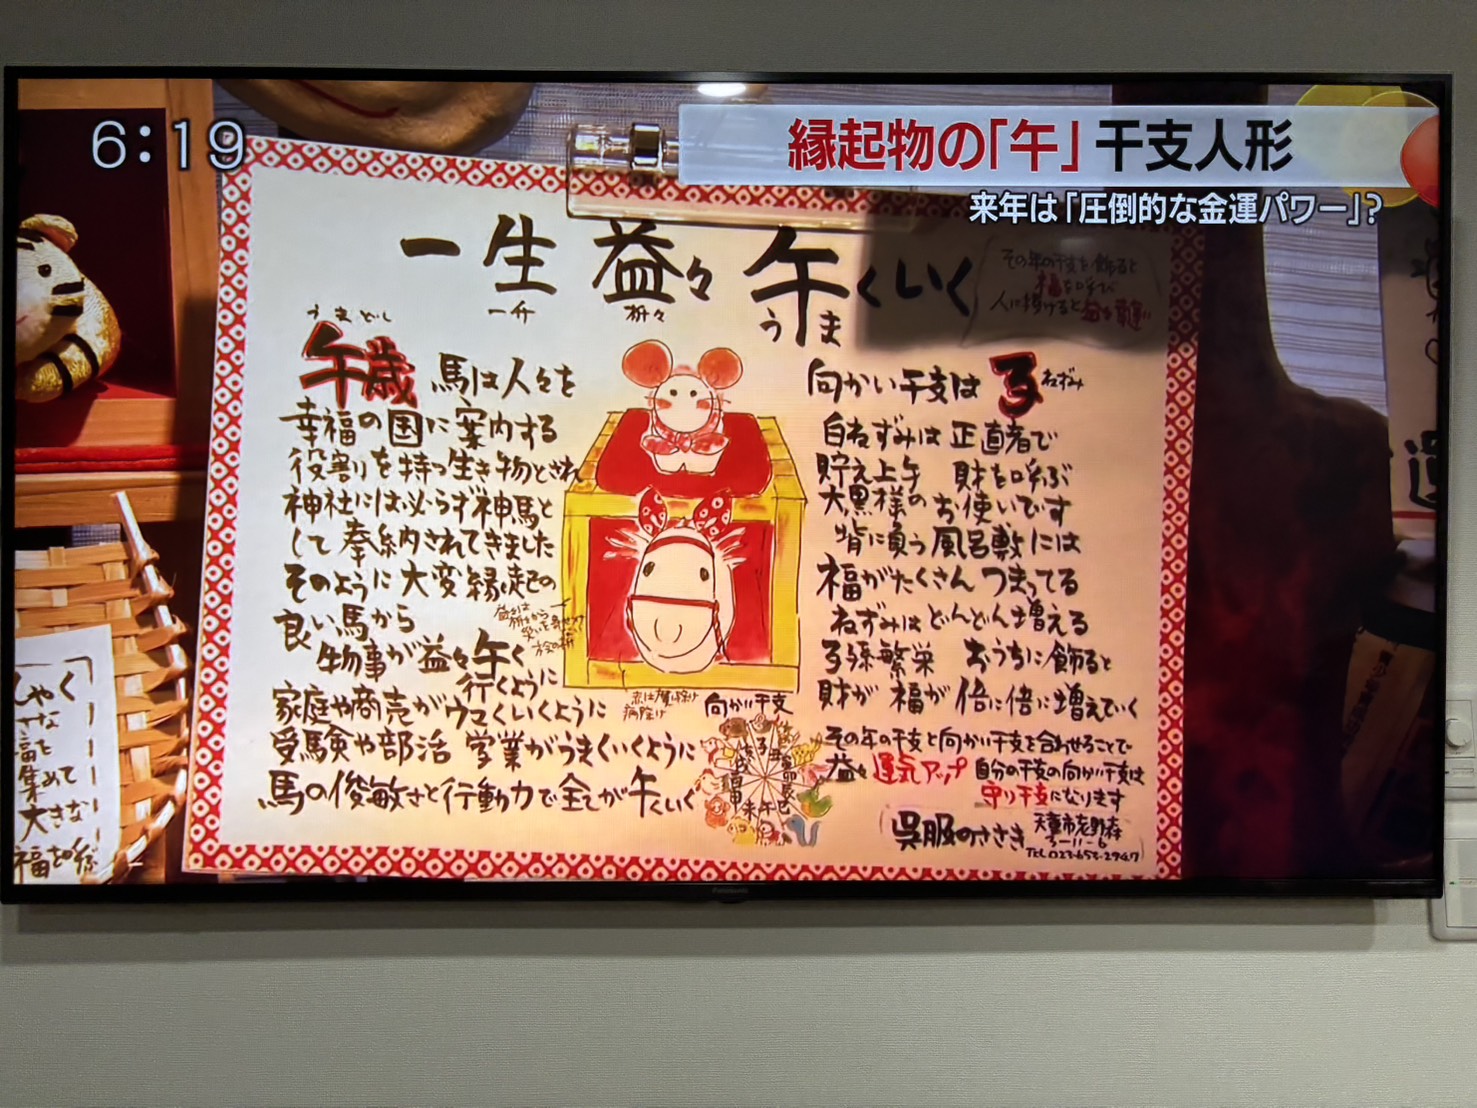 6:19
縁起物の「午」干支人形
来年は「圧倒的な金運パワー」?
一生 益々 午くいく
一升 枡々 うま
その年の干支を飾ると
福を呼び
人に授けると益々
うまどし
午歳 馬は人々を
幸福の国に案内する
役割を持つ生き物とされ
神社には必らず神馬と
して奉納されてきました
そのように大変縁起の
良い馬から
物事が益々午く
行くように
家庭や商売がウマくいくように
受験や部活 学業がうまくいくように
馬の俊敏さと行動力で全てが午くいく
病除け
向かい干支
向かい干支は 子 ねずみ
白ねずみは正直者で
貯え上午 財を呼ぶ
大黒様のお使いです
背に負う風呂敷には
福がたくさんつまってる
ねずみはどんどん増える
子孫繁栄 おうちに飾ると
財が福が倍に倍に増えていく
その年の干支と向かい干支を合わせることで
益々運気アップ 自分の干支の向かい干支は
守り干支になります
呉服のささき 天童市老野森
3-11-6
TEL 023-653-2947
しゃく
福を
集めて
大きな
福を呼ぶ
Panasonic